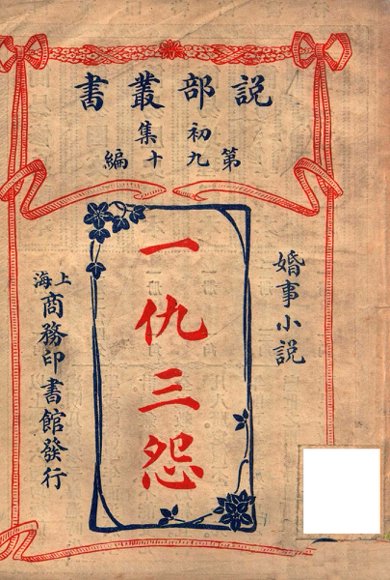 説部叢書
初集
第九十編
婚事小説
一仇三怨
上海
商務印書館發行